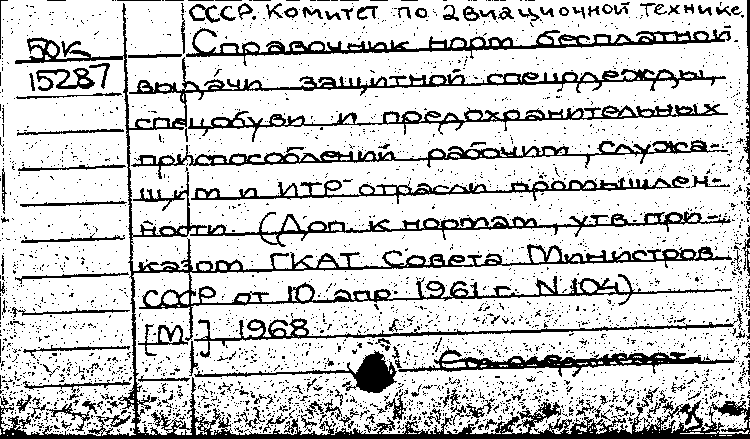 СССР. Комитет по авиационной технике.
50К Справочник норм бесплатной
15287 выдачи защитной спецодежды,
спецобуви и предохранительных
приспособлений рабочим, служа-
щим и ИТР отрасли промышлен-
ности. (Доп. к нормам, утв. при-
казом ГКАТ Совета Министров
СССР от 10 апр. 1961 г. N 104)
[М.], 1968
См. след. карт.